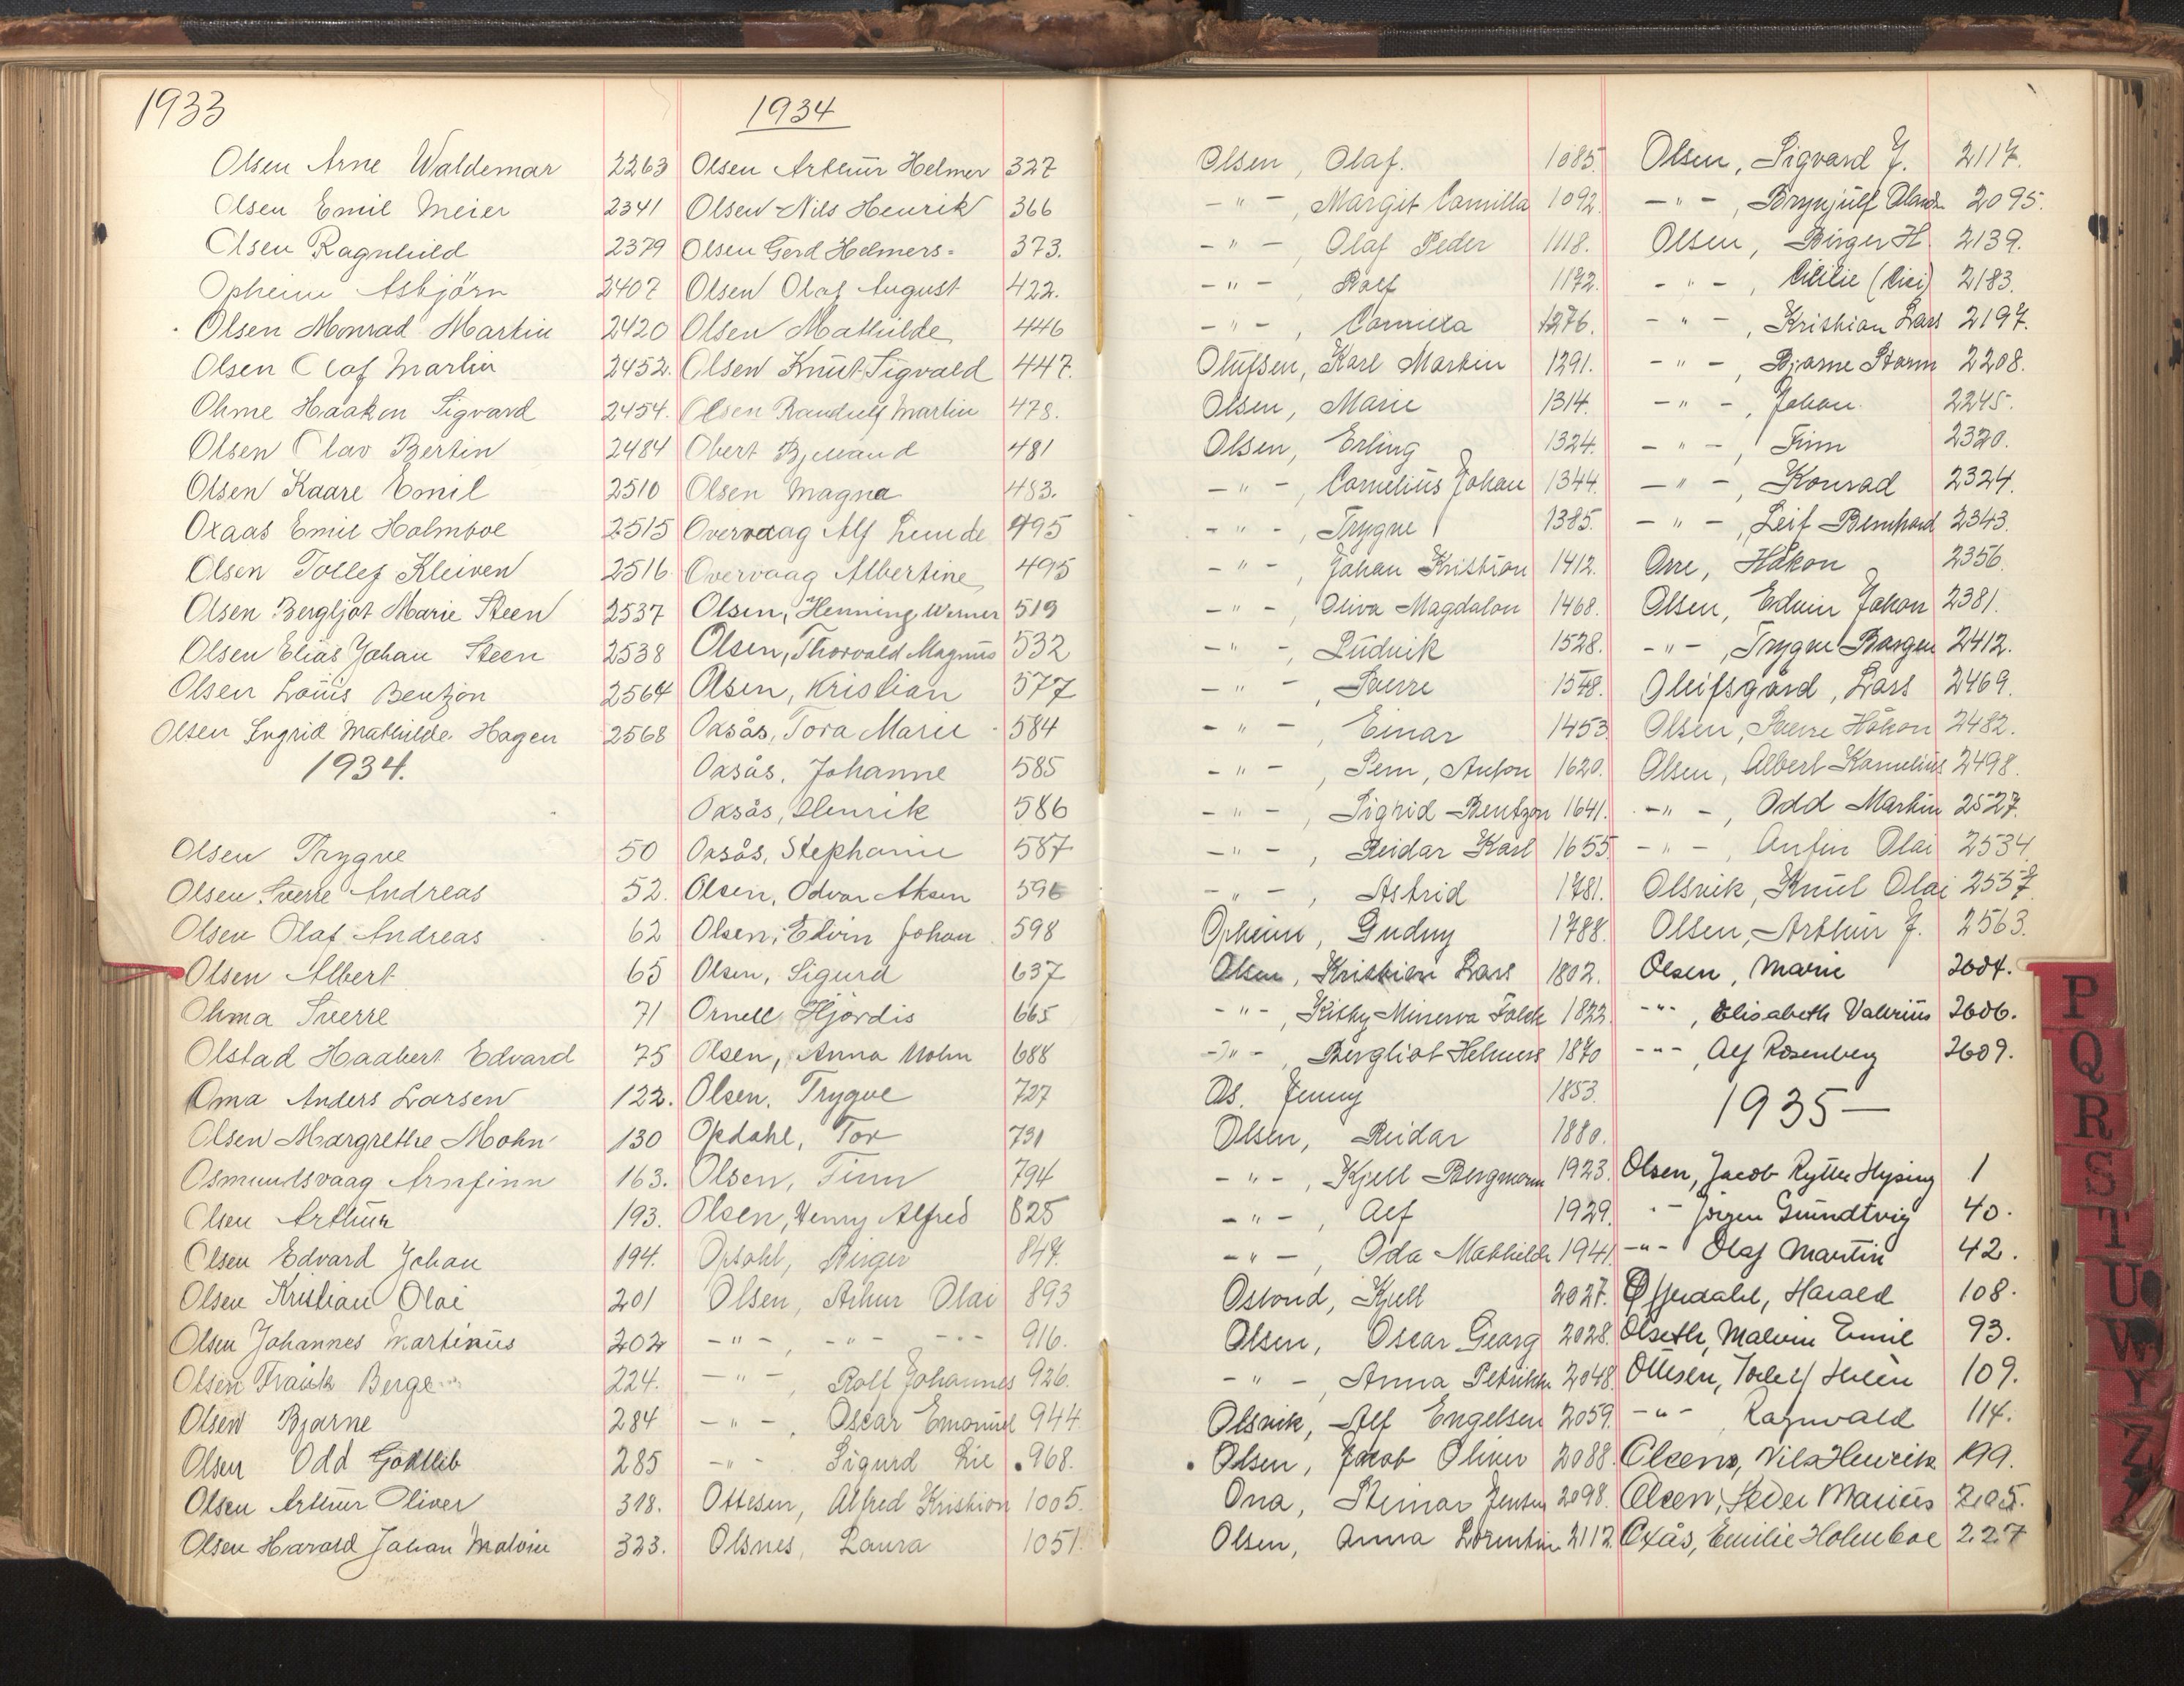 1933
Olsen Arne Waldemar 2263
Olsen Emil Meier 2341
Olsen Ragnhild 2379
Opheim Asbjörn 2407
Olsen Monrad Martin 2420
Olsen Olaf Martin 2452.
Ohme Haakon Sigvard 2454.
Olsen Olav Bertin 2484
Olsen Kaare Emil 2510
Oxaas Emil Holmboe 2515
Olsen Tollef Kleiven 2516
Olsen Bergljot Marie Steen 2537
Olsen Elias Johan Steen 2538
Olsen Louis Bentzon 2564
Olsen Ingrid Mathilde Hagen 2568
1934.
Olsen Trygve 50
Olsen Sverre Andreas 52.
Olsen Olaf Andreas 62
Olsen Albert 65
Ohma Sverre 71
Olstad Haabert Edvard 75
Oma Anders Larsen 122.
Olsen Margrethe Mohn 130
Osmundsvaag Arnfinn 163.
Olsen Arthur 193.
Olsen Edvard Johan 194.
Olsen Kristian Olai 201
Olsen Johannes Martinus 202
Olsen Frank Berge 224.
Olsen Bjarne 284
Olsen Odd Gottlieb 285
Olsen Arthur Oliver 318.
Olsen Harald Johan Malvin 323.
1934
Olsen Arthur Helmer 327
Olsen Nils Henrik 366
Olsen Gerd Helmers- 373.
Olsen Olaf August 422.
Olsen Mathilde 446
Olsen Knut Sigvald 447.
Olsen Randulf Martin 478.
Obert 481
Olsen Magna 483.
Overvaag Alf Lunde 495
Overvaag Albertine 495
Olsen, Henning Werner 519
Olsen, Thorvald Magnus 532
Olsen, Kristian 577
Oksås, Tora Marie 584
Oksås, Johanne 585
Oksås, Henrik 586
Oksås, Stephanie 587
Olsen, Odvar Aksen 596
Olsen, Edvin Johan 598
Olsen, Sigurd 637
Ornell Hjördis 665
Olsen, Anna Mohn 688
Olsen, Trygve 727
Opdahl, Tor 791
Olsen, Finn 794
Olsen, Henry Alfred 825
Opdahl, Birger 847.
Olsen, Arhur Olai 893
-"- -"- --- 916.
-"-, Rolf Johannes 926.
-"-, Oscar Emanuel 944
-"- Sigurd Lie 968.
Ottesen, Alfred Kristian 1005.
Olsnes, Laura 1051.
Olsen, Olaf. 1085.
-"-, Margit Camilla 1092.
-"- Olaf Peder 1118.
-"-, Rolf 1172.
-"-, Camilla 1276.
Olufsen, Karl Martin 1291.
Olsen, Marie 1314.
Olsen, Erling 1324.
-"-, Cornelius Johan 1344.
-"-, Trygve 1385.
-"-, Johan Kristian 1412.
-"-, Oliva Magdalon 1468.
-"-, Ludvik 1528.
-"-, Sverre 1548.
-"-, Einar 1453
-"-, Sem, Anton 1620.
-"-, Sigrid Bentzon 1641.
-"-, Reidar Karl 1655
-"-, Astrid 1781.
Opheim, Gudny 1788.
Olsen, Kristian Lars 1802.
-"-, Kitty Minerva Falck 1822.
-"-, Bergliot Helmers 1870
Os. Jenny 1853.
Olsen, Reidar 1880.
-"-, Kjell Bergmann 1923.
-"-, Alf 1929.
-"-, Oda Mathilde 1941.
Osland, Kjell 2027.
Olsen, Oscar Georg 2028.
-"-, Anna Petrikke 2048.
Olsvik, Alf Engelsen 2059.
Olsen, Jacob Oliver 2088.
Ona, Steinar Jensen 2098.
Olsen, Anna Lorentine 2112.
Olsen, Sigvard J. 2117.
-"-, Brynjulf 2095.
Olsen, Birger H. 2139.
-"-, Cicilie (Cici) 2183.
-"-, Kristian Lars 2197.
-"-, Bjarne Storm 2208.
-"-, Johan 2245.
-"-, Finn 2320.
-"-, Konrad 2324.
-"-, Leif Bernhard 2343.
Orre, Håkon 2356.
Olsen, Edvin Johan 2381.
-"-, Trygve Borgen 2412.
Oleifsgård, Lars 2469.
Olsen, Sverre Håkon 2482.
Olsen, Albert Kornelius 2498.
-"-, Odd Martin 2527.
-"-, Anfin Olai 2534.
Olsvik, Knut Olai 2557.
Olsen, Arthur J. 2563.
Olsen, Marie 2604.
-"-, Elisabeth Valerius 2606.
-"-, Alf Rosenberg 2609.
1935—
Olsen, Jacob Rytter Hysing 1
-"- Jörgen Grundtvig 40.
-"- Olaf Martin 42.
Offerdahl, Harald 108.
Olseth, Malvin Emil 93.
Ottesen, 109.
-"-, Ragnvald 114.
Olsen, Nils Henrik 199.
Olsen, Peder Marius 205.
Oxås, Emilie Holmboe 227
P
Q
R
S
T
U
W
Y
Z